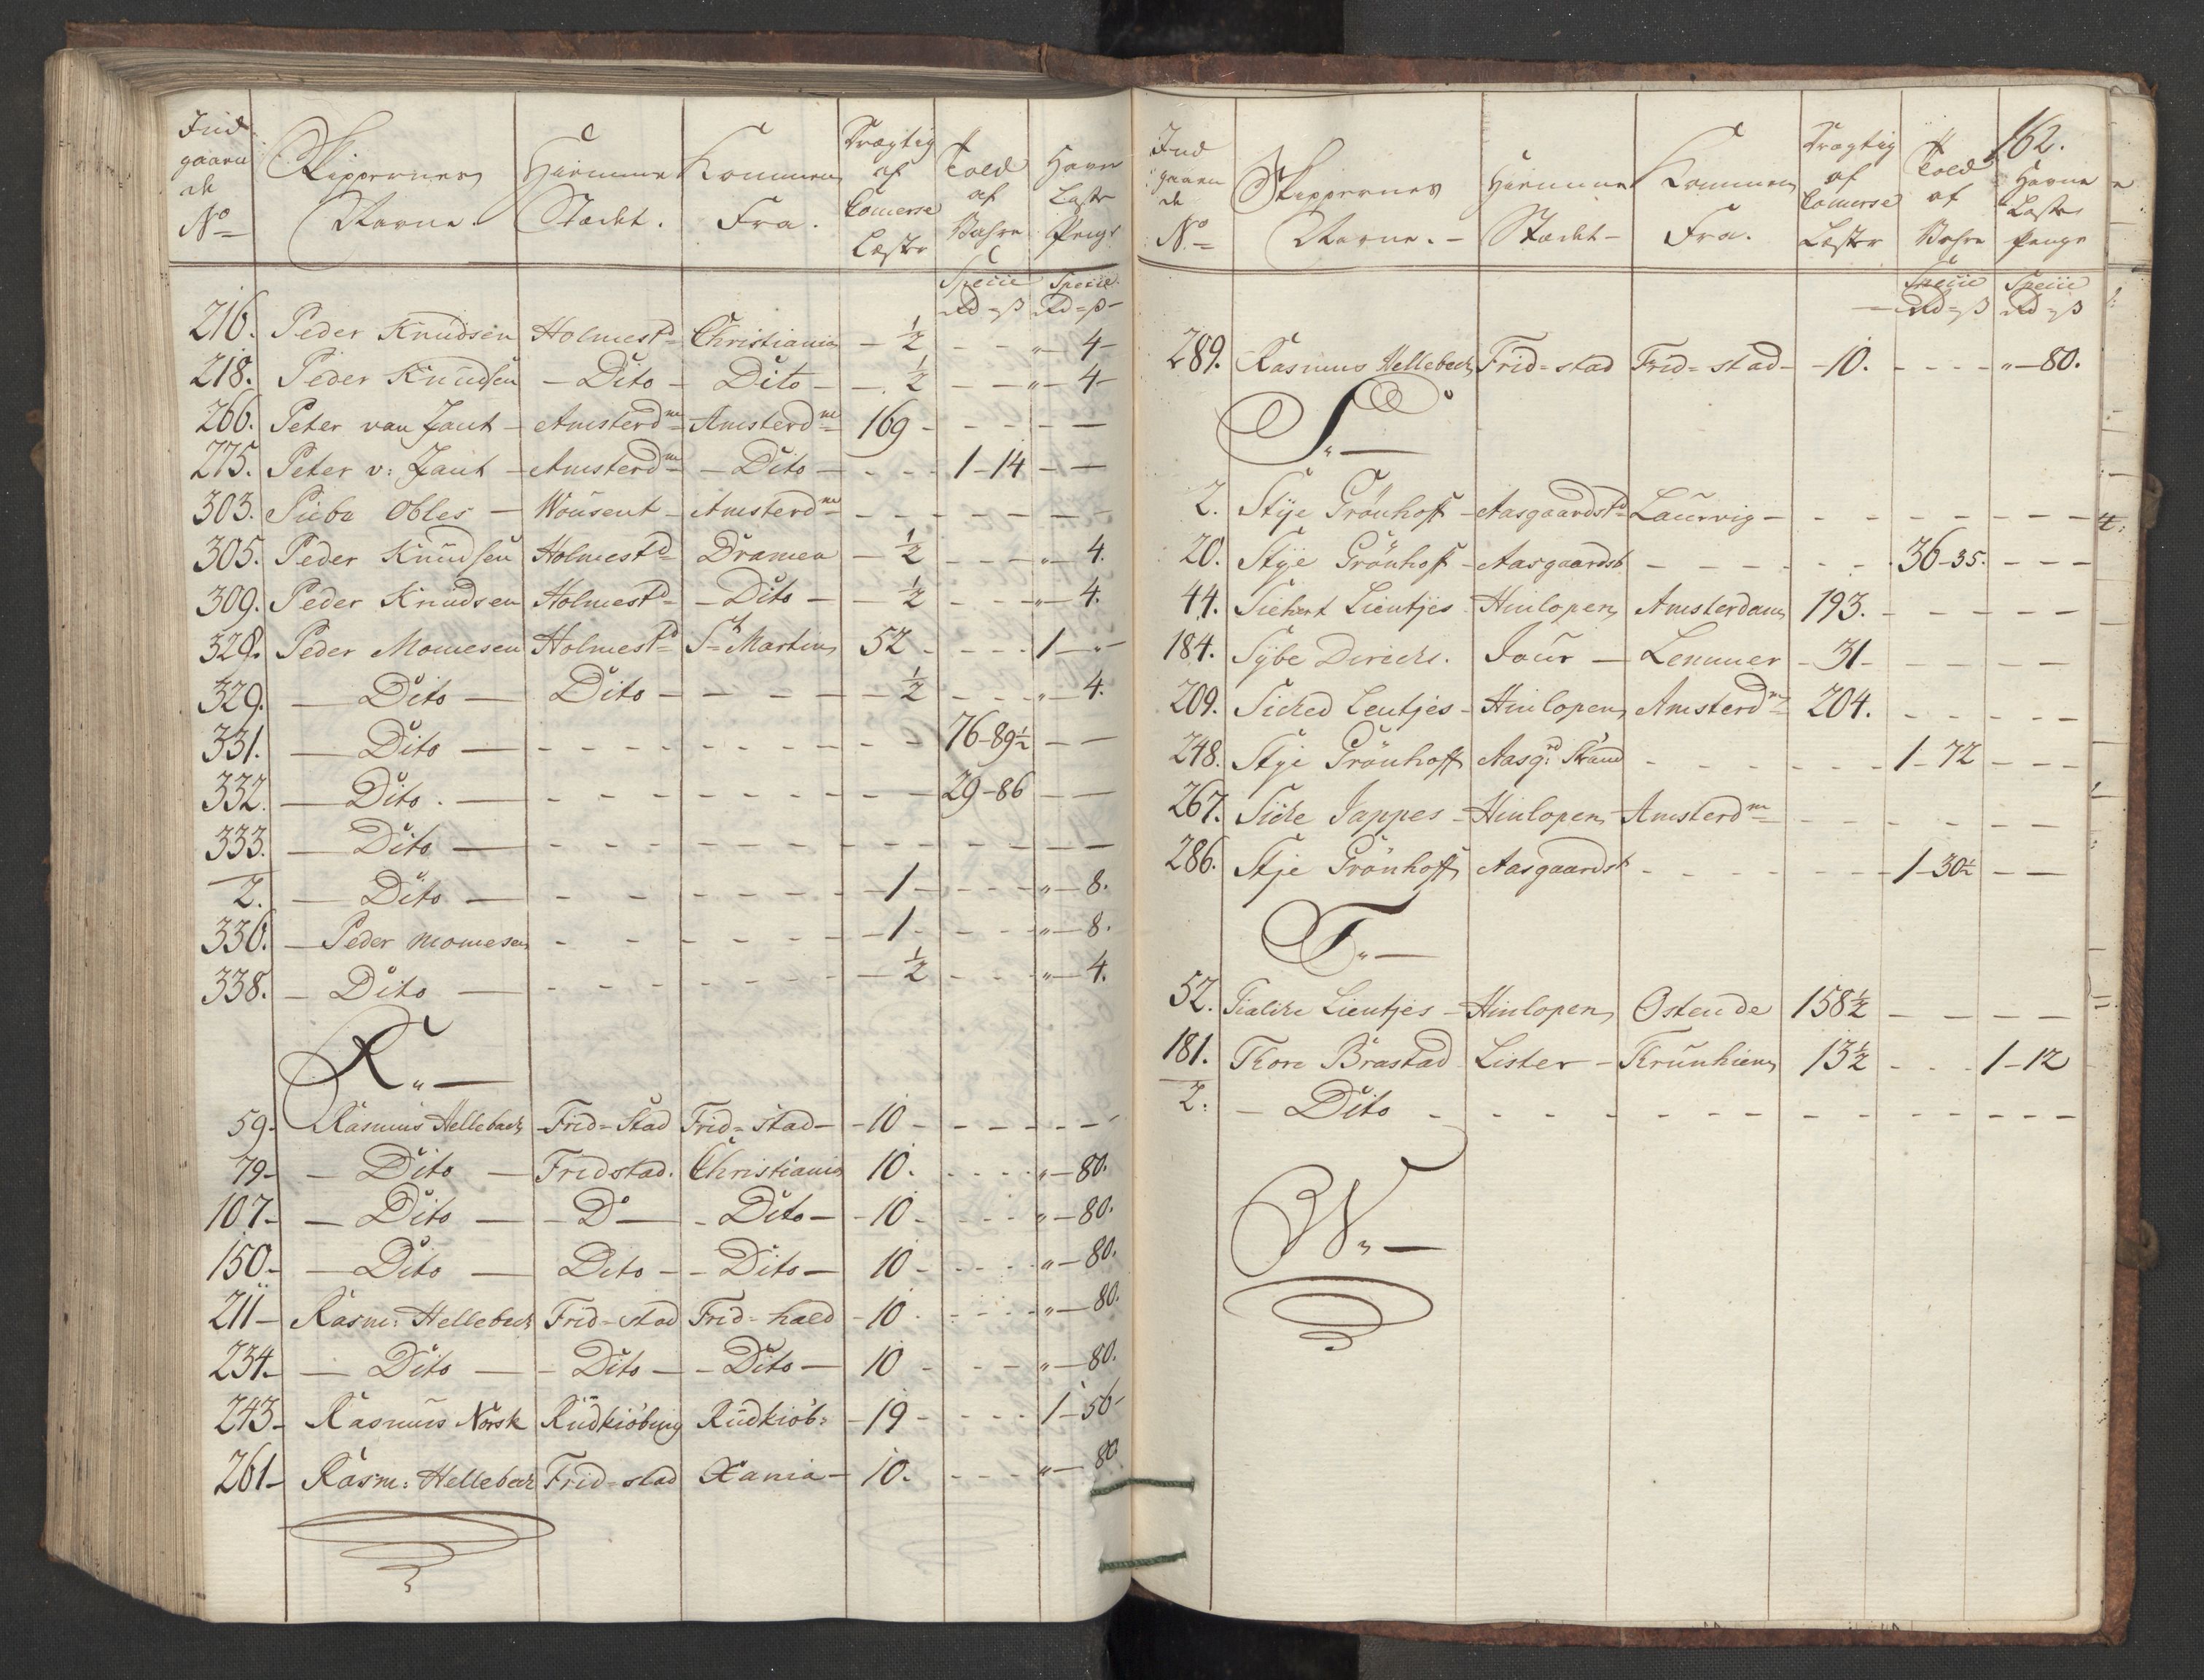 Ind
gaaen
de
No
Skippernes
Navne.
Hiemme
Stædt.
Kommen
Fra.
Drægtig
af
Comerse
Læster
Told
af
Vahre
Havn
Laste
Peng
Specie Specie
Rd=ß Rd=ß-
216. Peder Knudsen Holmestd Christiania - ½ - - „ - 4-
218. Peder Knudsen - Dito - Dito - - ½ - - „ - 4-
266. Peter van Zant - Amsterdm Amsterdm 169 - - - - -
275. Peter v: Zant - Amsterdm - Dito - - - - 1-14 - -
303. Obles - Amsterdm - - - - - -
305. Peder Knudsen Holmestd Dramen - ½ - - - „ - 4.
309. Peder Knudsen Holmestd - Dito - - ½ - - - „ - 4.
328. Peder Momesen Holmestd St Martin 52 - - - 1 - „ -
329. - Dito - Dito - - - - - ½ - - „ - 4.
331. - Dito - - - - - - - - - 76-89½ - -
332. - Dito. - - - - - - - - - 29-86 - -
333. - Dito - - - - - - - - - - - -
2. - Dito - - - - - - - 1 - - - „ - 8.
336. - Peder Momesen - - - - - - 1 - - - „ - 8.
338. - Dito - - - - - - - ½ - - - „ - 4.
R„ -
59- Rasmus Hellebach Frid=Stad Frid=stad- -10- - - - - -
79- - Dito - Fridstad. Christiania 10. - - - - „ -80.
107- - Dito - - Do - - Dito - -10- - - - „ -80.
150- - Dito - Dito - - Dito - 10 - - - - „ -80.
211- Rasm: Hellebach Frid=stad Frid=hald -10. - - - - „ -80.
234- - Dito - - Dito - - Dito - 10 - - - - „ -80.
243- Rasmus Norsk Rudkiöbing Rudkiöb: -19- - - - 1-56-
261- Rasm: Hellebach Frid=stad Xania- 10. - - - - „ -80.
162.
Ind
gaaen
de
No
Skippernes
Navne.-
Hiemme
Stædt-
Kommen
Fra.
Drægtig
af
Comerse
Læster
Told
af
Vahre
Havne
Laste
Penge
Specie Specie
Rd=ß Rd=ß
289. Rasmus Hellebach Frid=stad Frid=stad- -10. - - - - „ -80.
S„ -
2. Stye Grönhoff - Aasgaardstd Laurvig - - - - - - - -
20. Stye Grönhoff - Aasgaardst - - - - - - 36-35. - - -
44. Siehert Lientjes Hinlopen Amsterdam 193. - - - - -
184. Sÿbe Dirichs. Jour - Lemmer -31- - - - -
209. Sicked Leutjes - Hinlopen Amsterdm 204. - - - - -
248. Stye Grönhoff Aasgd Strand - - - - - - - 1-72 - - -
267. Sicke Jappes - Hinlopen - Amsterdm - - - - - -
286. Stje Grönhoff Aasgaardst - - - - - - - 1-30½ - -
T„ -
52. Tialcke Lientjes - Hinlopen Ostende 158½ - - - -
181. Thore Brastad Lister - 13½ - - - 1-12
2. - Dito - - - - - - - - - - - - -
W„ -